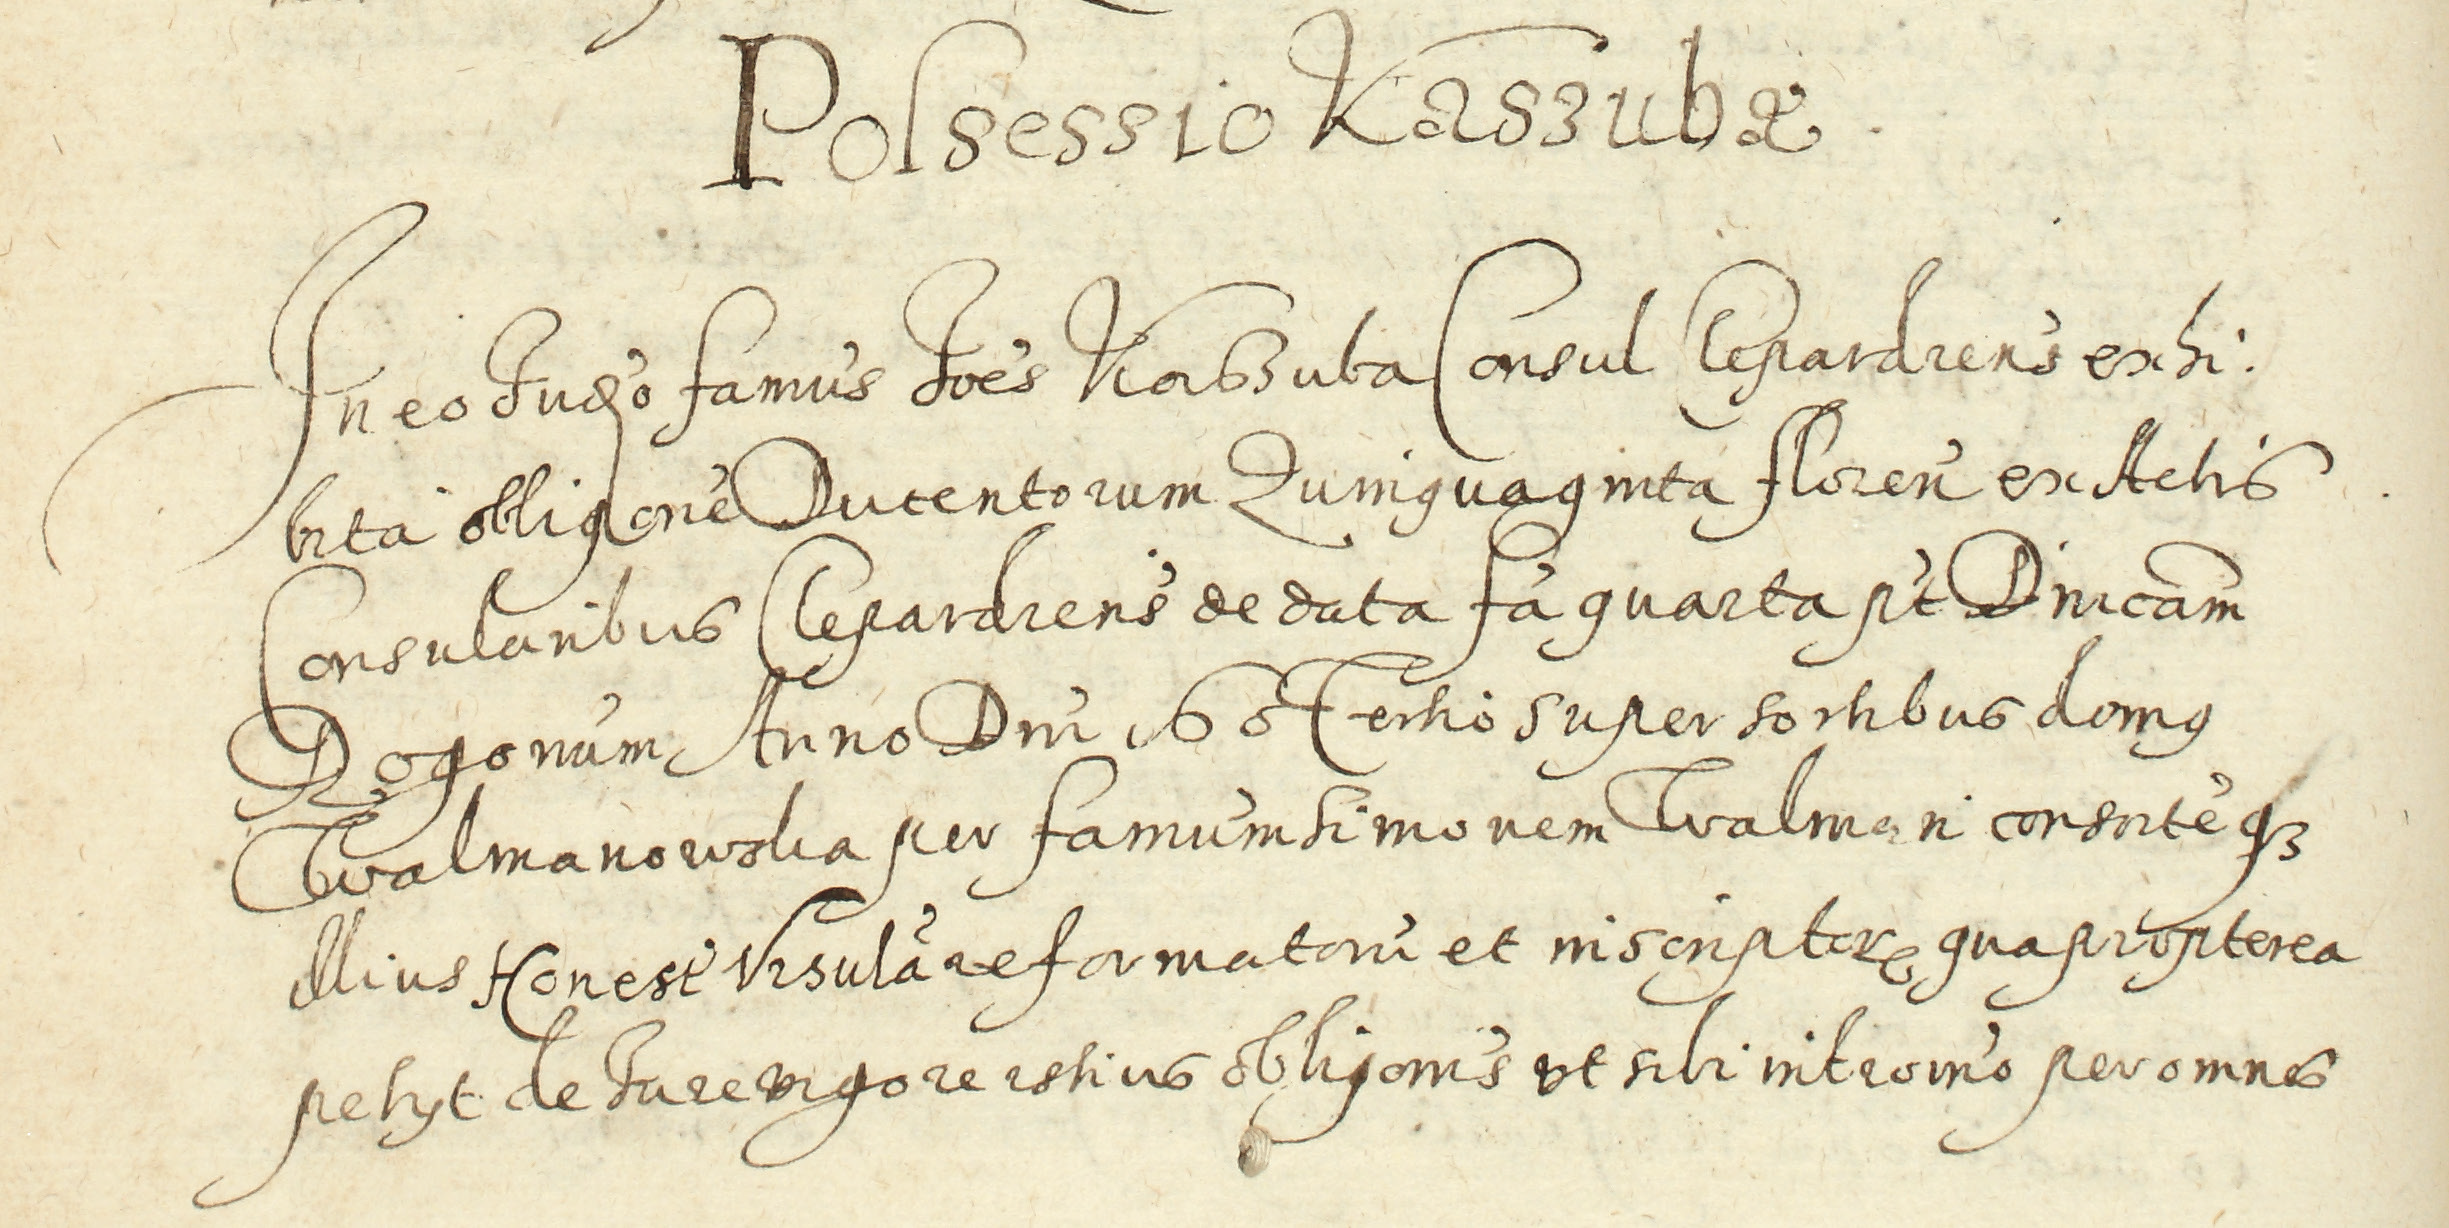 Possessio Kaszubæ.
In eo Judō famus Joēs Kaszuba Consul Clepardiens exhi:
bita obligone Ducentorum Quinquaginta floren ex Actis
Consularibus Clepardiens de data fa quarta pt Dnicam
Rogonum Anno Dni 160 Tertio super sortibus domus
Walmanowska per famum Simonem Walman consorteqz
illius Honest Vrsula reformatoru et inscriptor qua propterea
petyt de Jure vigore istius obligonis vt sibi intromo per omnes